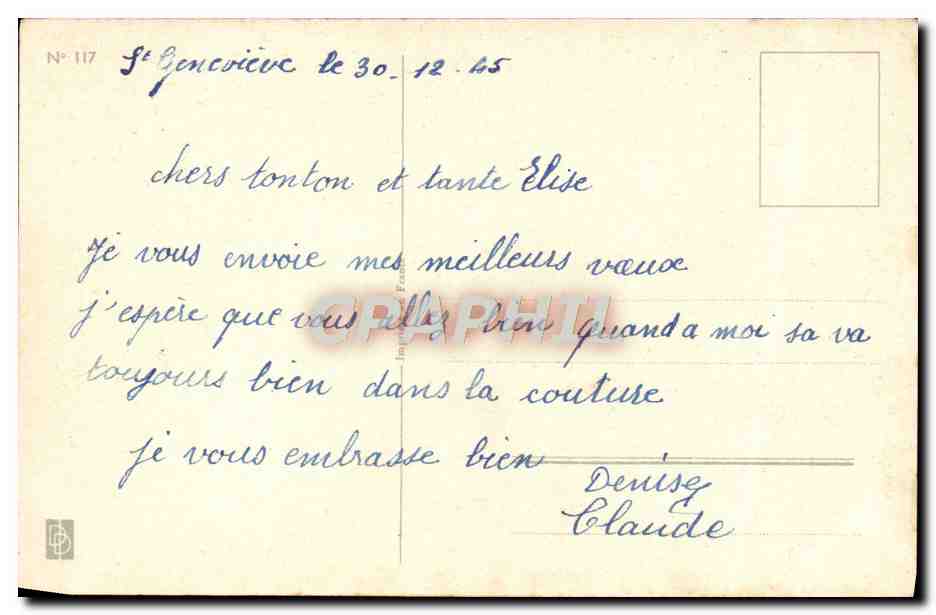 N° 117
St Geneviève le 30-12-45
chers tonton et tante Elise
Je vous envoie mes meilleurs vœux
j'espère que vous allez bien quand a moi sa va
toujours bien dans la couture
je vous embrasse bien
Denise
Claude
CPAPHIL